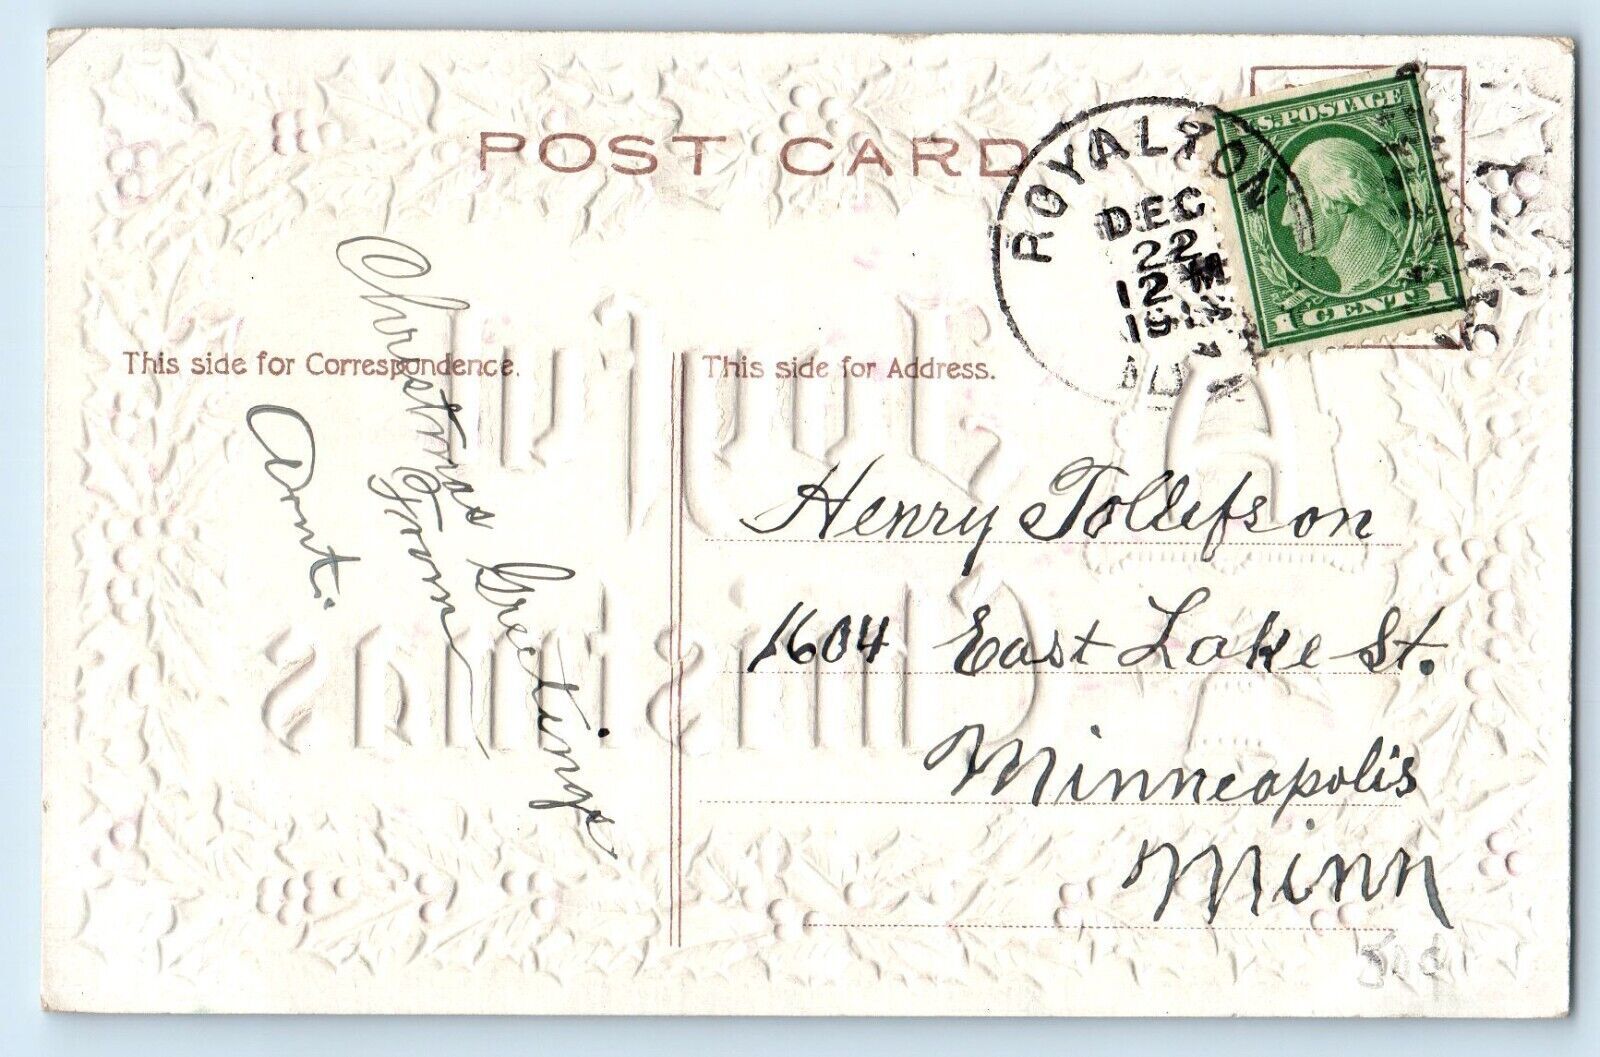 POST CARD
ROYALTON
DEC
22
12 M
U.S. POSTAGE
1 CENT 1
This side for Correspondence.
This side for Address.
Christmas Greetings
From
Aunt.
Henry Tollefson
1604 East Lake St.
Minneapolis
Minn